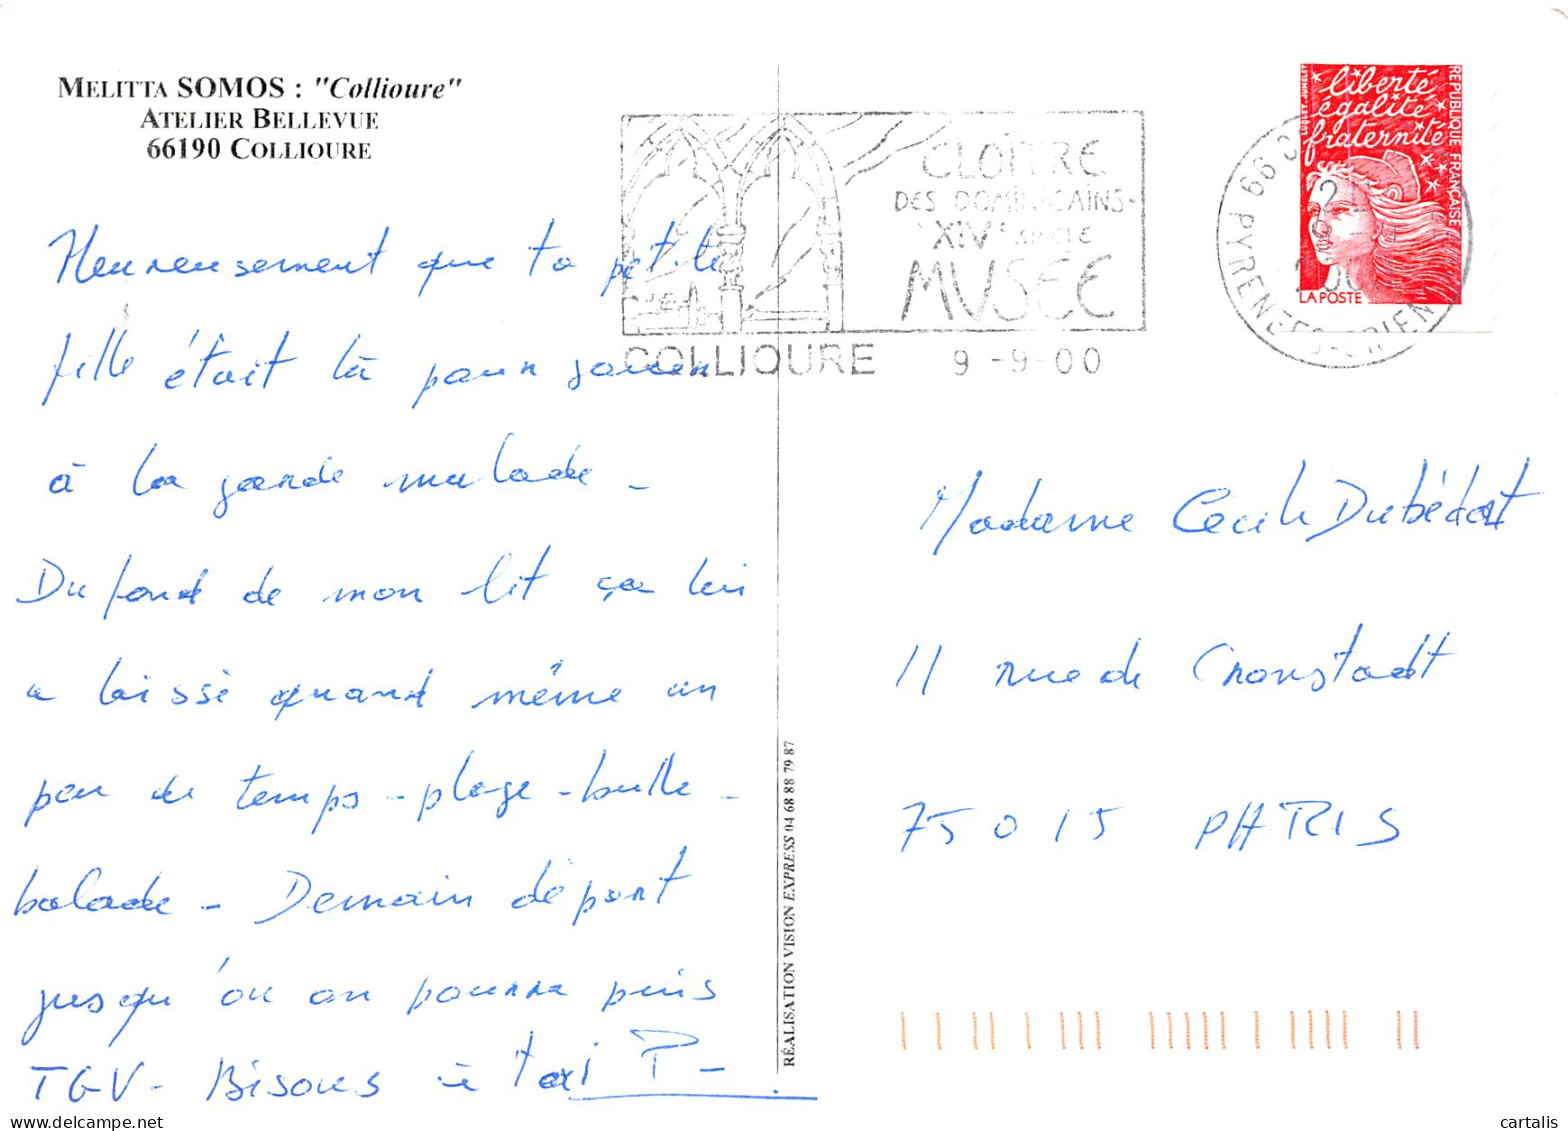 MELITTA SOMOS : "Collioure"
ATELIER BELLEVUE
66190 COLLIOURE
Heureusement que ta petite
fille était là pour jouer
à la garde malade -
Du fond de mon lit ça lui
a laissé quand même un
peu de temps - plage - bulle -
balade - Demain départ
jusqu'où on pourra puis
TGV - Bisous à toi P -
CLOÎTRE
DES DOMINICAINS
XIVe SIECLE
MUSEE
COLLIOURE 9 -9-00
66 PYRENEES-ORIEN
2000
liberté
égalité
fraternité
REPUBLIQUE FRANÇAISE
LA POSTE
Madame Cecile Dubédat
11 rue de Cronstadt
75015 PARIS
RÉALISATION VISION EXPRESS 04 68 88 79 87
cartalis